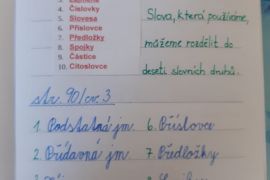 4. Číslovky
5. Slovesa
6. Příslovce
7. Předložky
8. Spojky
9. Částice
10. Citoslovce
Slova, která používáme,
můžeme rozdělit do
deseti slovních druhů.
str. 90/cv. 3
1. Podstatná jm. 6. Příslovce
2. Přídavná jm. 7. Předložky